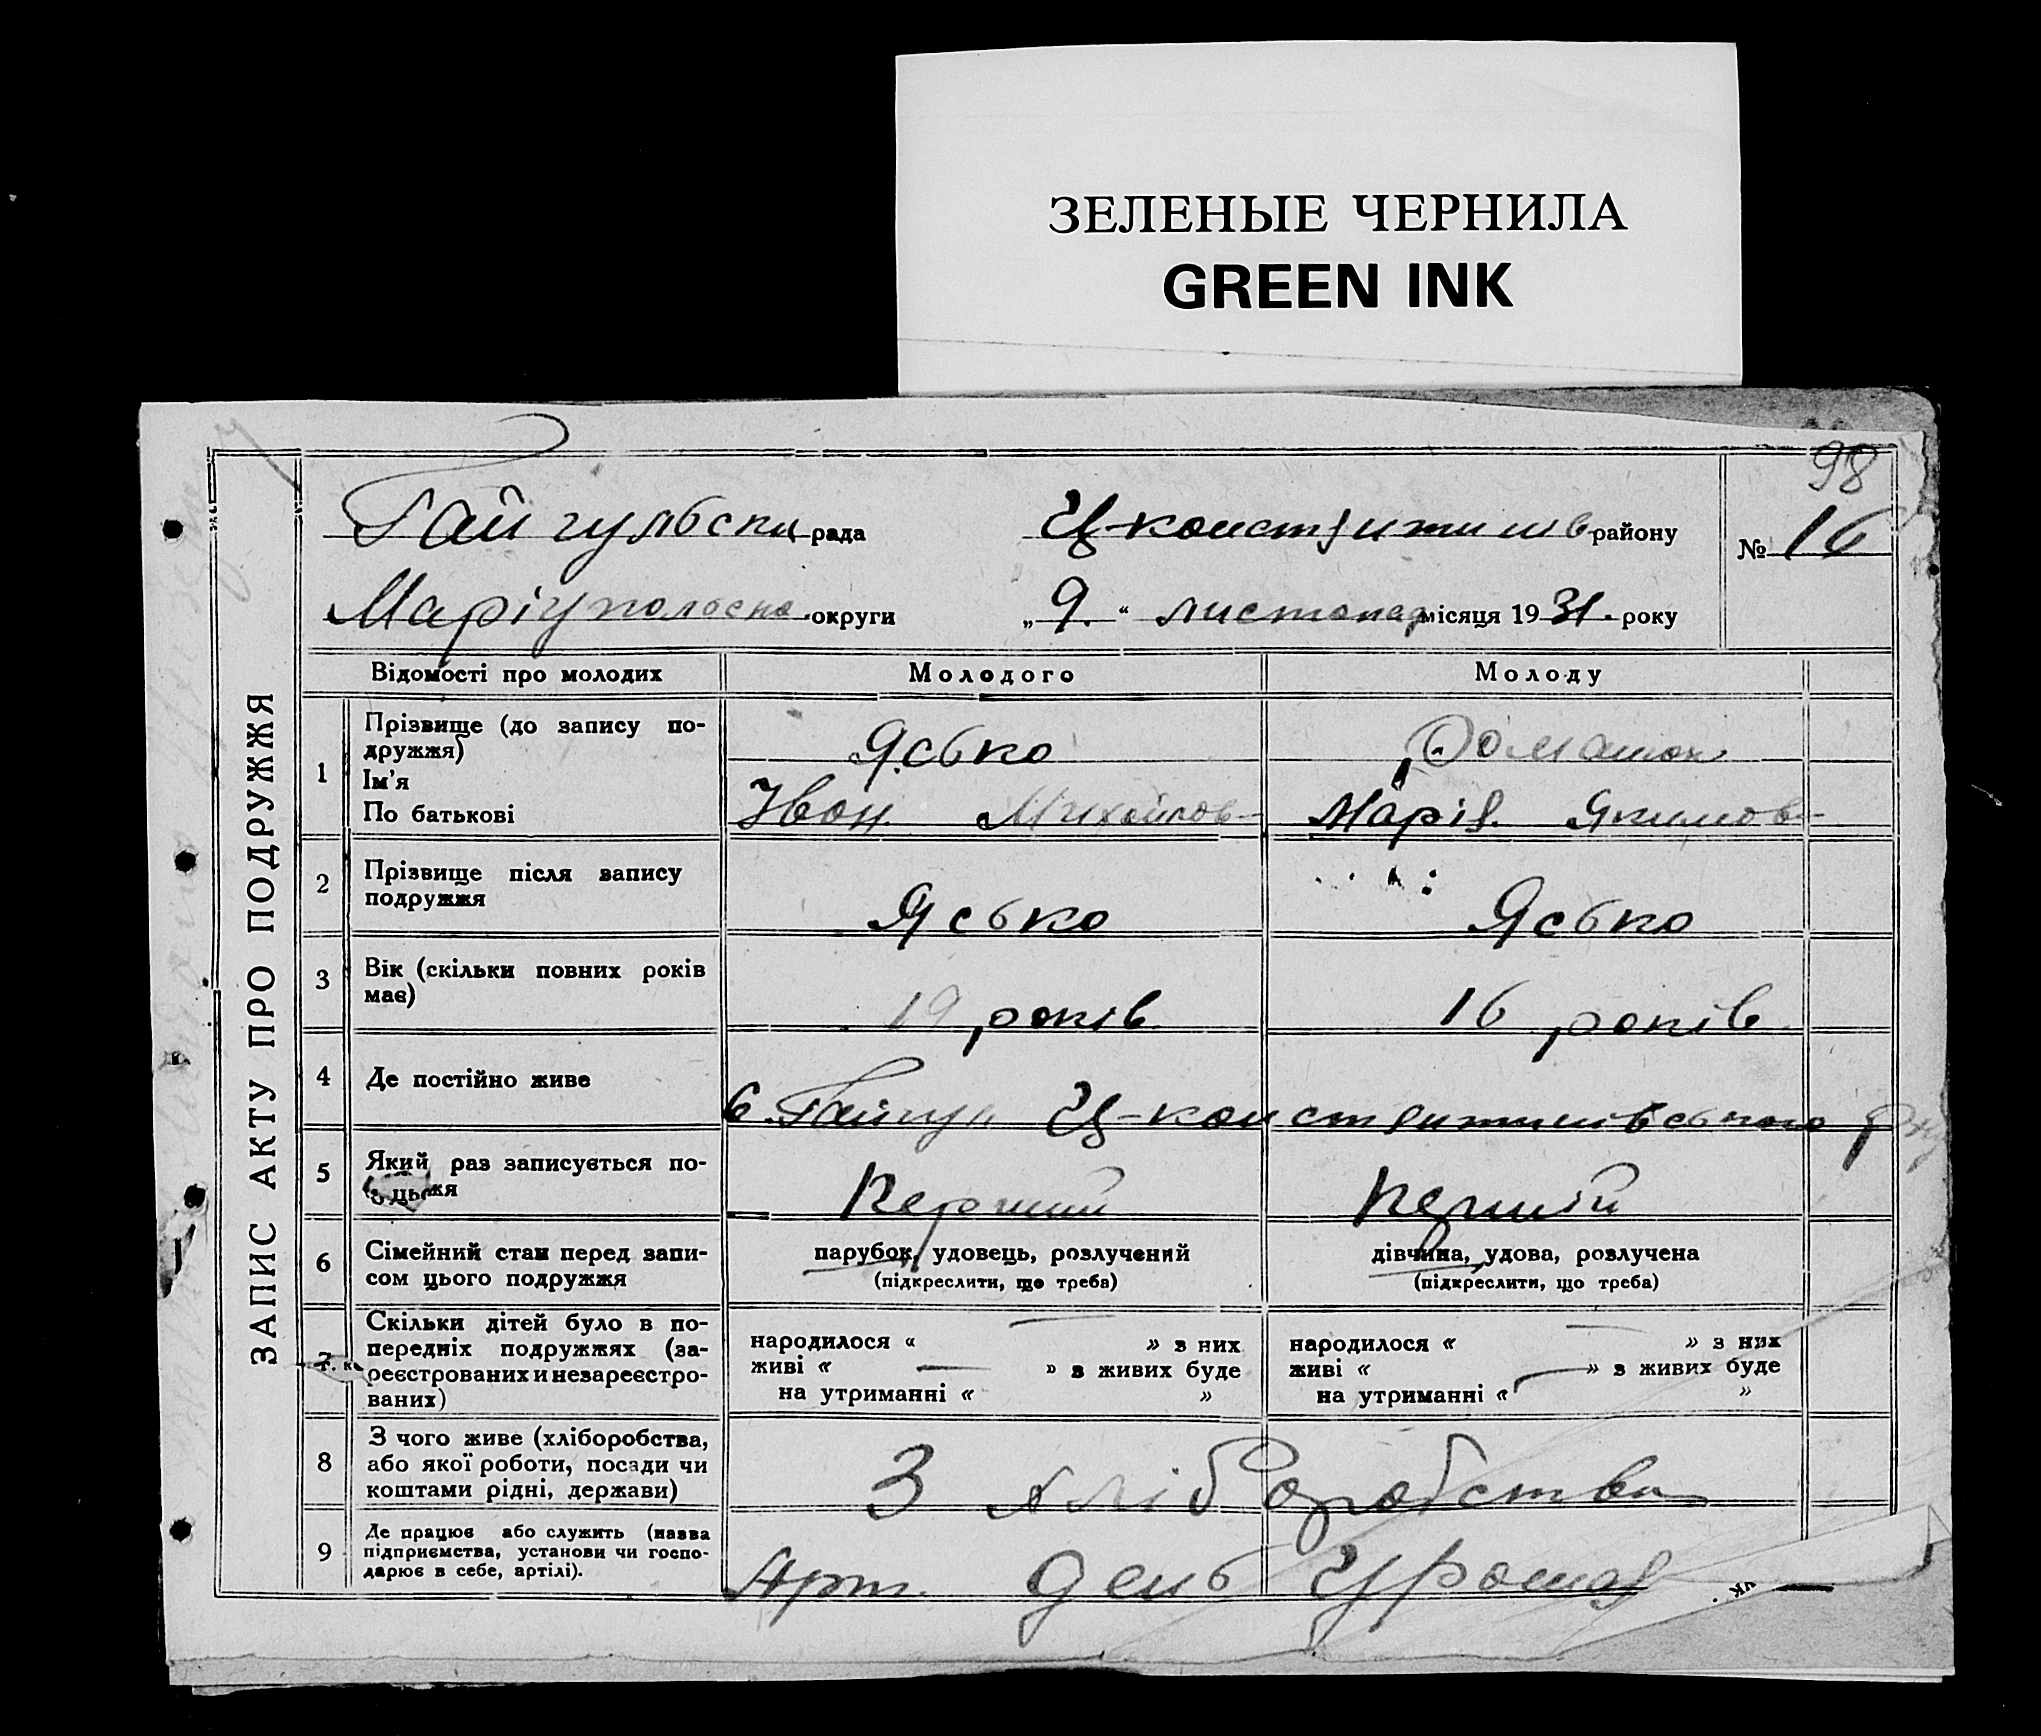 ЗЕЛЕНЫЕ ЧЕРНИЛА
GREEN INK
98
Гайчульська рада Ц-констянтинів району № 16
Маріупольська округи „ 9. “ листопад місяця 19 31. року
ЗАПИС АКТУ ПРО ПОДРУЖЖЯ
Відомості про молодих Молодого Молоду
1 Прізвище (до запису по-
дружжя) Ясько
Ім'я
По батькові Іван Михайлов- Марія Якимов-
2 Прізвище після запису
подружжя Ясько Ясько
3 Вік (скільки повних років
має) 19 років 16 років
4 Де постійно живе с. Гайчул Ц-констянтинівського р-ну
5 Який раз записується по-
Перший Перший
6 Сімейний стан перед запи-
сом цього подружжя
парубок, удовець, розлучений дівчина, удова, розлучена
(підкреслити, що треба) (підкреслити, що треба)
7 Скільки дітей було в по-
передніх подружжях (за-
реєстрованих и незареєстро-
ваних)
народилося « — » з них народилося « — » з них
живі « — » з живих буде живі « — » з живих буде
на утриманні « » на утриманні « »
8 З чого живе (хліборобства,
або якої роботи, посади чи
коштами рідні, держави) З хліборобства
9 Де працює або служить (назва
підприємства, установи чи госпо-
дарює в себе, артілі). Арт. День Урожая